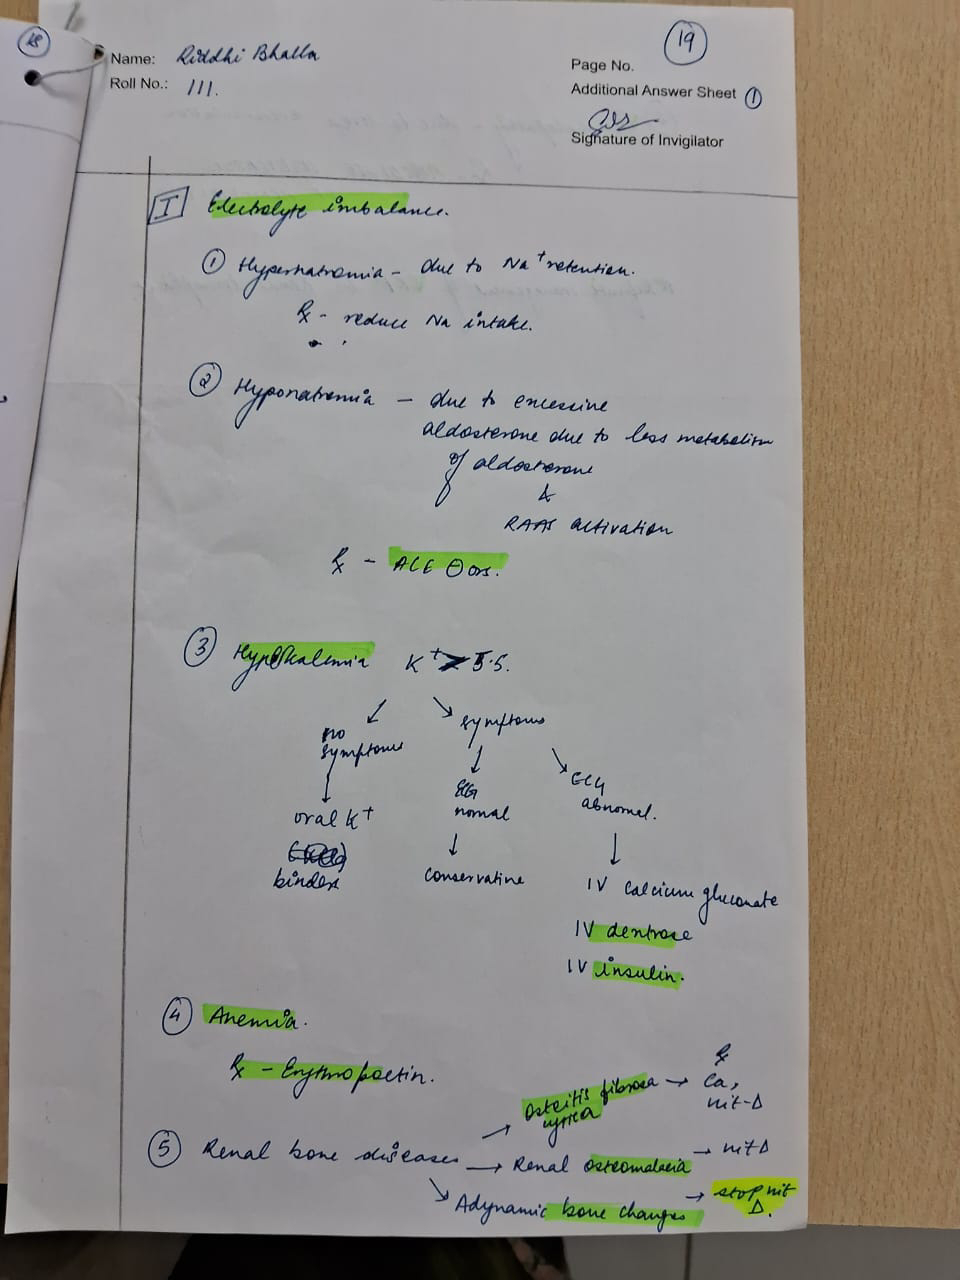 18
19
Name: Riddhi Bhalla
Roll No.: 111.
Page No.
Additional Answer Sheet 1
Signature of Invigilator
I Electrolyte imbalance.
1 Hypernatremia - due to Na+ retention.
Rx - reduce Na intake.
2 Hyponatremia - due to excessive
aldosterone due to less metabolism
of aldosterone
&
RAAS activation
Rx - ACE ⊖ors.
3 Hyperkalemia K+ > 5.5.
no symptoms
symptoms
ECG normal
ECG abnormal.
oral K+
binders
conservative
IV Calcium gluconate
IV dextrose
IV insulin.
4 Anemia.
Rx - Erythropoetin.
5 Renal bone diseases
→ Osteitis fibrosa cystica → Rx Ca, vit-D
→ Renal osteomalacia → vit D
→ Adynamic bone changes → stop vit D.